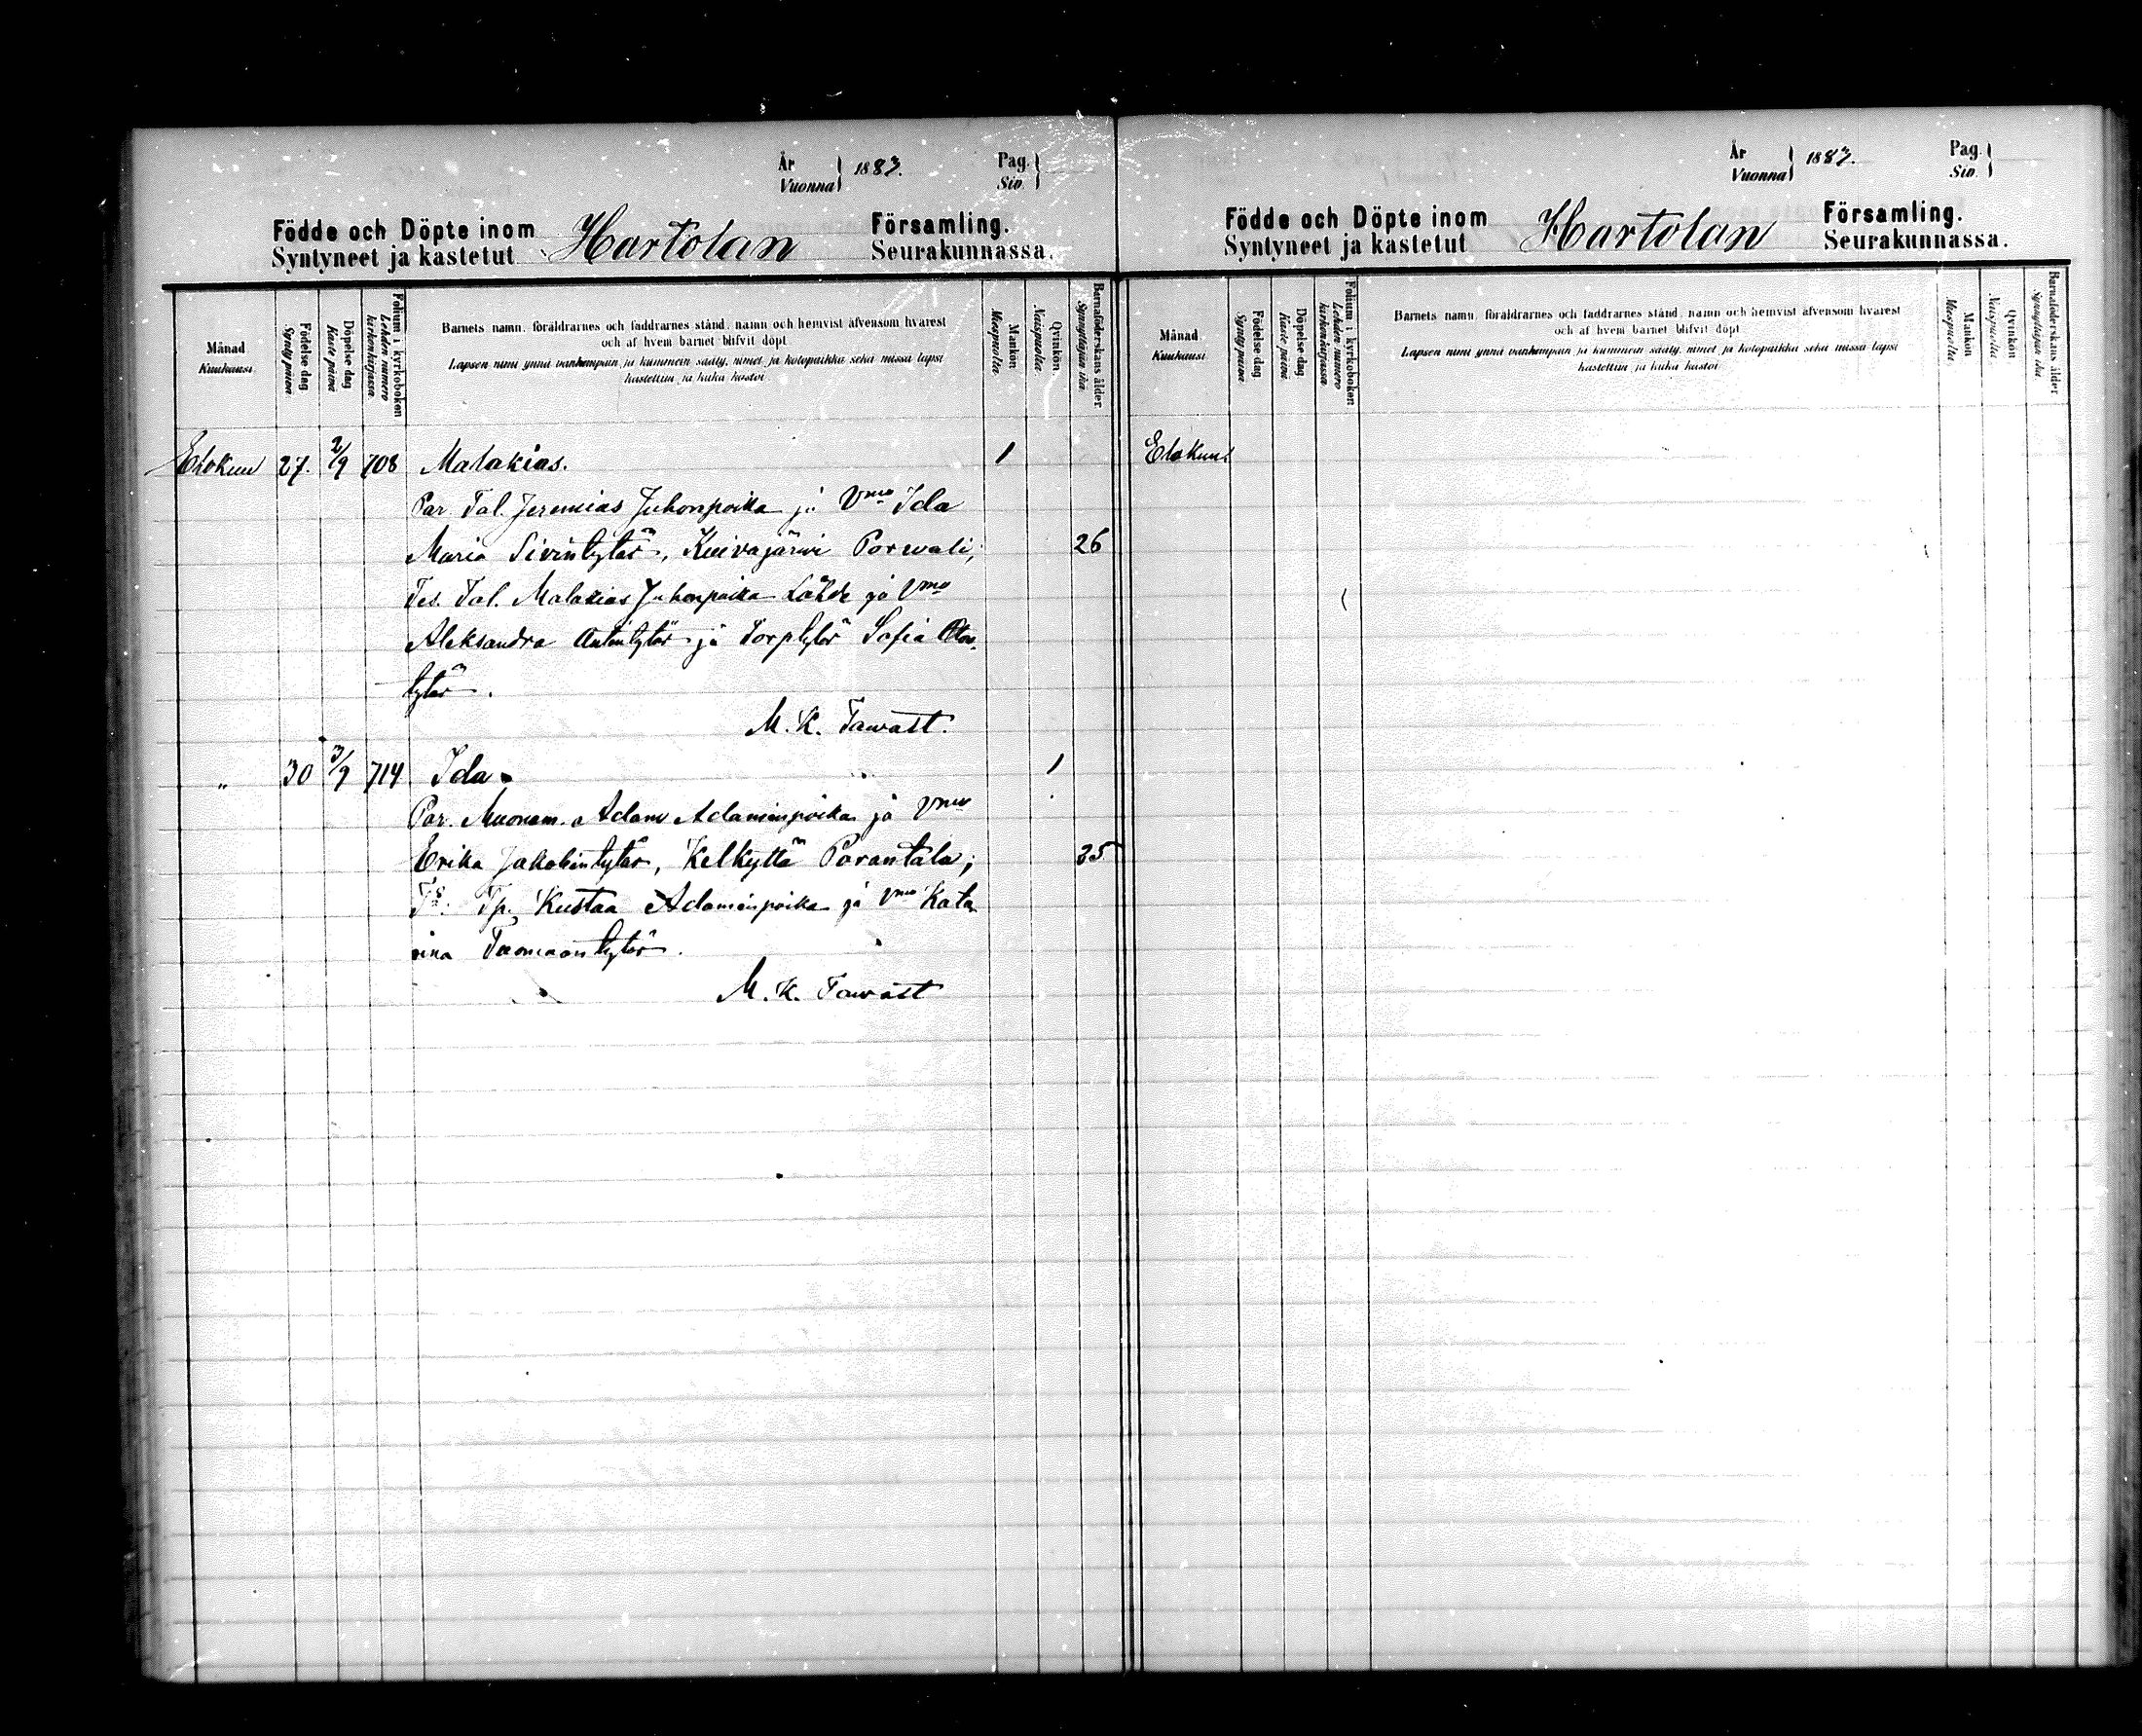 År Vuonna } 1883. Pag. Siv. }
Födde och Döpte inom Hartolan Församling.
Syntyneet ja kastetut Seurakunnassa.
Månad Kuukausi
Födelse dag Synty päivä
Döpelse dag Kaste päivä
Folium i kyrkoboken Lehden numero kirkonkirjassa.
Barnets namn, föräldrarnes och faddrarnes stånd, namn och hemvist äfvensom hvarest
och af hvem barnet blifvit döpt
Lapsen nimi ynnä vanhempain ja kummein sääty, nimet ja kotopaikka sekä missä lapsi
kastettiin ja kuka kastoi
Mankön Miespuolia
Qvinkön Naispuolia
Barnaföderskans ålder Synnyttäjän ikä
Elokuu 27. 2/9 708 Malakias. 1
Par. Tal. Jeremias Juhonpoika ja Vmo Ida
Maria Sivintytär, Kuivajärwi Porwali; 26
Tes. Tal. Malakias Juhonpoika Lähde ja Vmo
Aleksandra Antintytär ja Torptytär Sofia
tytär.
M. K. Tawast.
" 30 3/9 714 Ida. 1
Par. Muonam. Adam Adaminpoika ja Vmo
Erika Jakobintytär, Kelkyttä Porantala; 35
Ts. Tp. Kustaa Adaminpoika ja Vmo Kata
rina Tuomaantytär.
M. K. Tawast
År Vuonna } 1883. Pag. Siv. }
Födde och Döpte inom Hartolan Församling.
Syntyneet ja kastetut Seurakunnassa.
Månad Kuukausi
Födelse dag Synty päivä
Döpelse dag Kaste päivä
Folium i kyrkoboken Lehden numero kirkonkirjassa.
Barnets namn, föräldrarnes och faddrarnes stånd, namn och hemvist äfvensom hvarest
och af hvem barnet blifvit döpt
Lapsen nimi ynnä vanhempain ja kummein sääty, nimet ja kotopaikka sekä missä lapsi
kastettiin ja kuka kastoi
Mankön Miespuolia
Qvinkön Naispuolia
Barnaföderskans ålder Synnyttäjän ikä
Elokuu